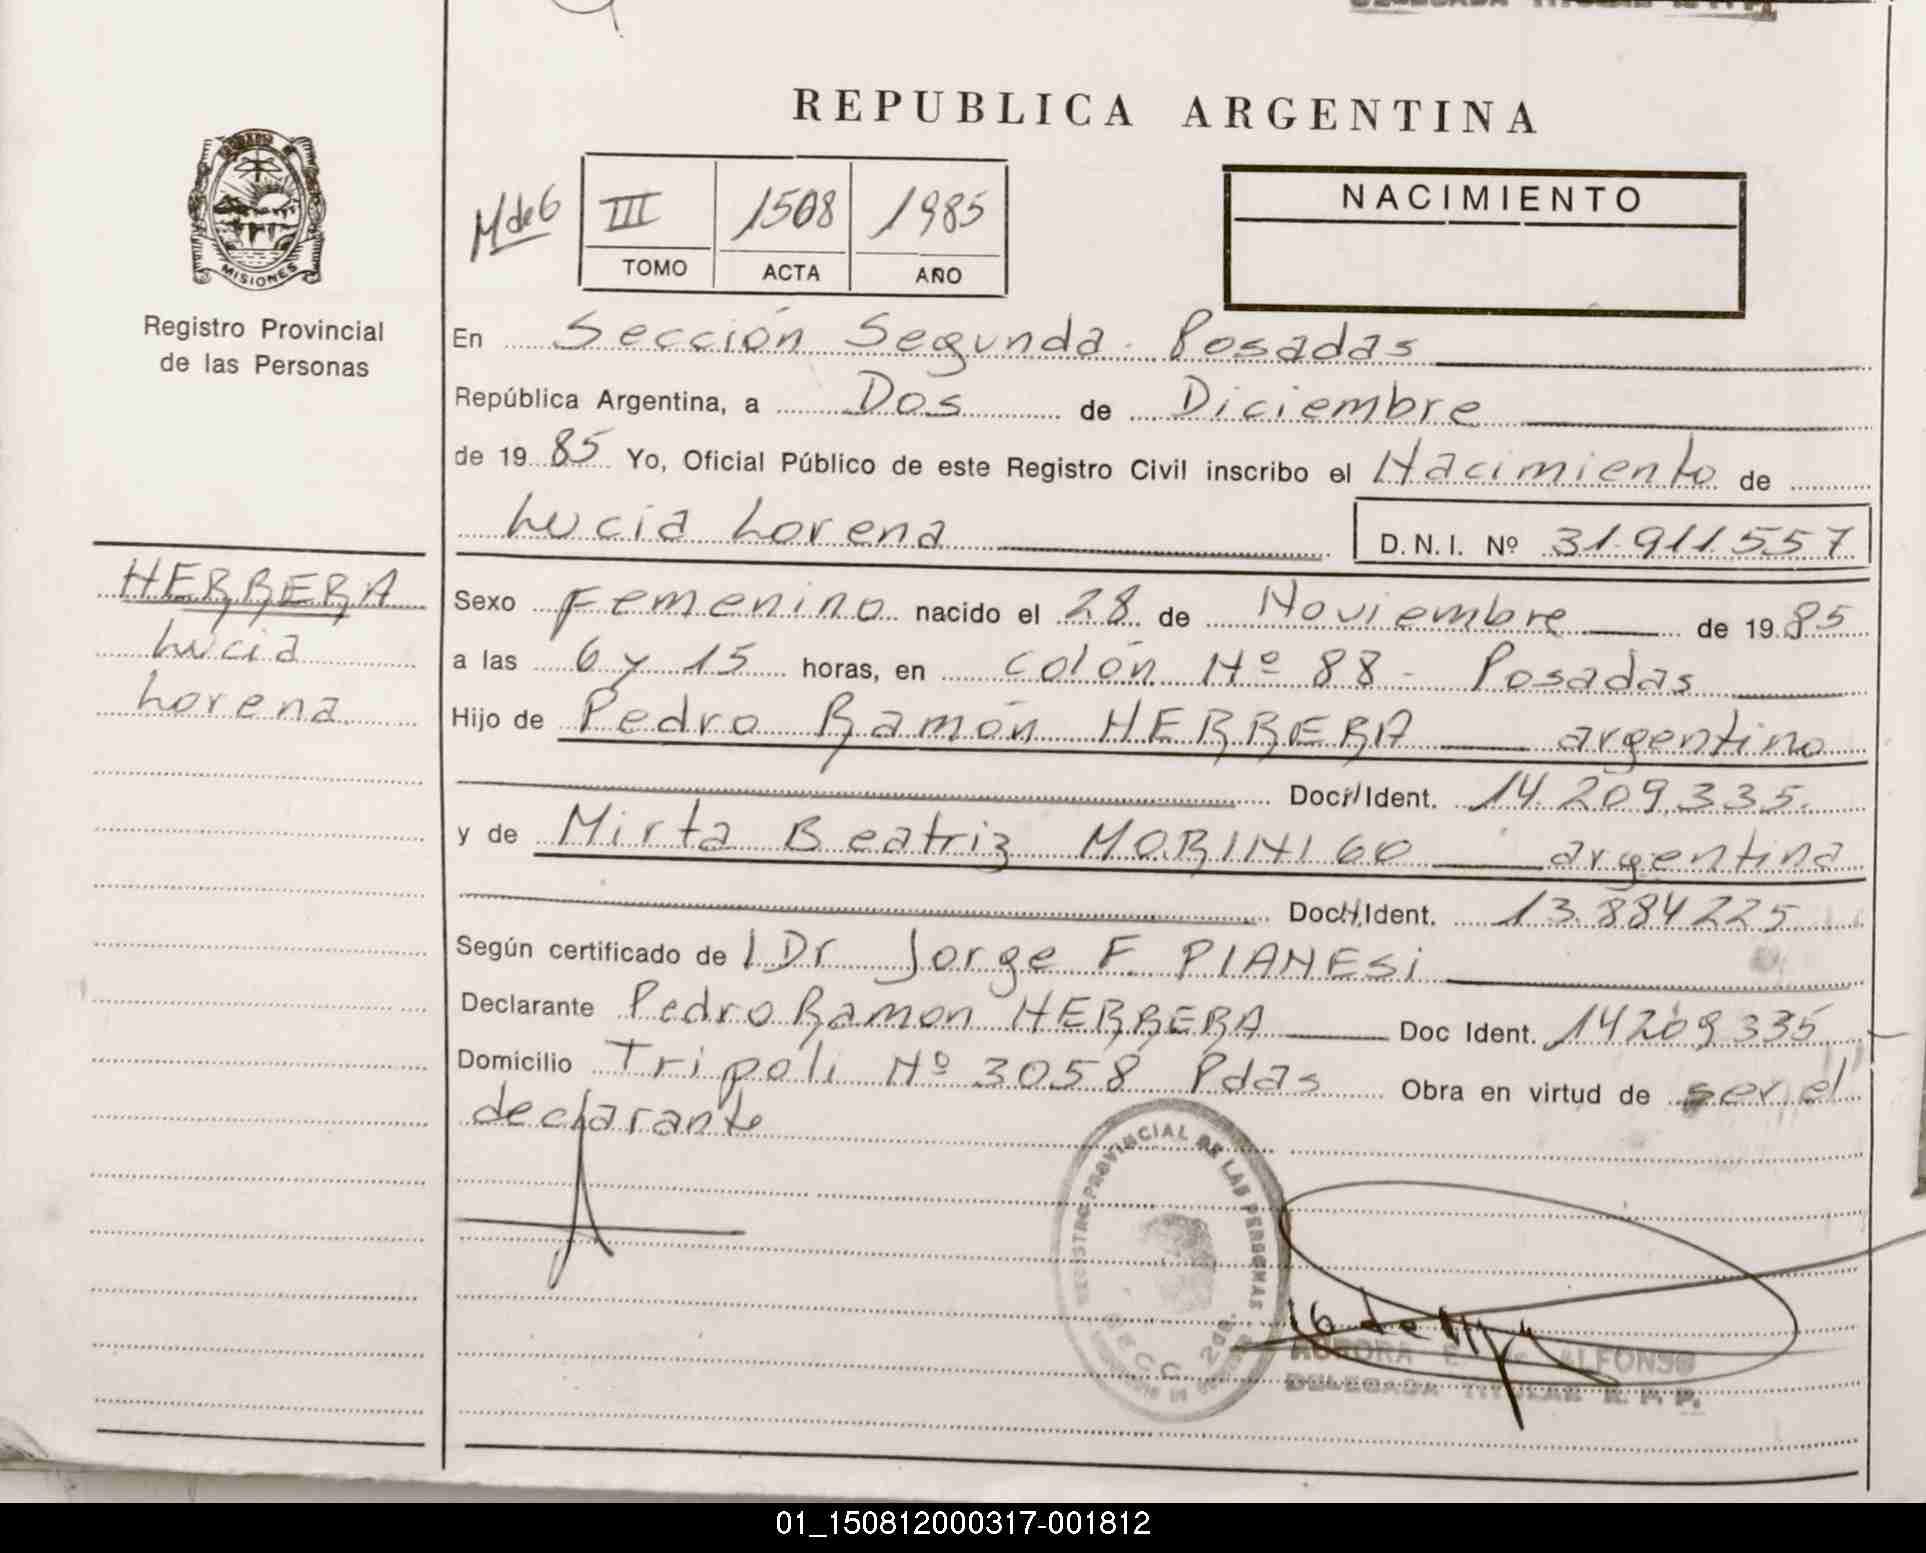 REPUBLICA ARGENTINA
MISIONES
Registro Provincial
de las Personas
M de 6
III 1508 1985
TOMO ACTA AÑO
NACIMIENTO
En Sección Segunda - Posadas
República Argentina, a Dos de Diciembre
de 19 85 Yo, Oficial Público de este Registro Civil inscribo el Nacimiento de
Lucia Lorena D.N.I. Nº 31.911.557
HERRERA
Lucia
Lorena
Sexo Femenino nacido el 28 de Noviembre de 19 85
a las 6 y 15 horas, en Colón Nº 88 - Posadas
Hijo de Pedro Ramón HERRERA argentino
Doc. Ident. 14.209.335.
y de Mirta Beatriz MORINIGO argentina
Doc. Ident. 13.884.225
Según certificado de l Dr Jorge F. PIANESI
Declarante Pedro Ramon HERRERA Doc Ident. 14209335
Domicilio Tripoli Nº 3058 Pdas Obra en virtud de ser el
declarante
REGISTRO PROVINCIAL DE LAS PERSONAS
SECC. 2da.
ALFONSO
DELEGADA TITULAR R. P. P.
01_150812000317-001812